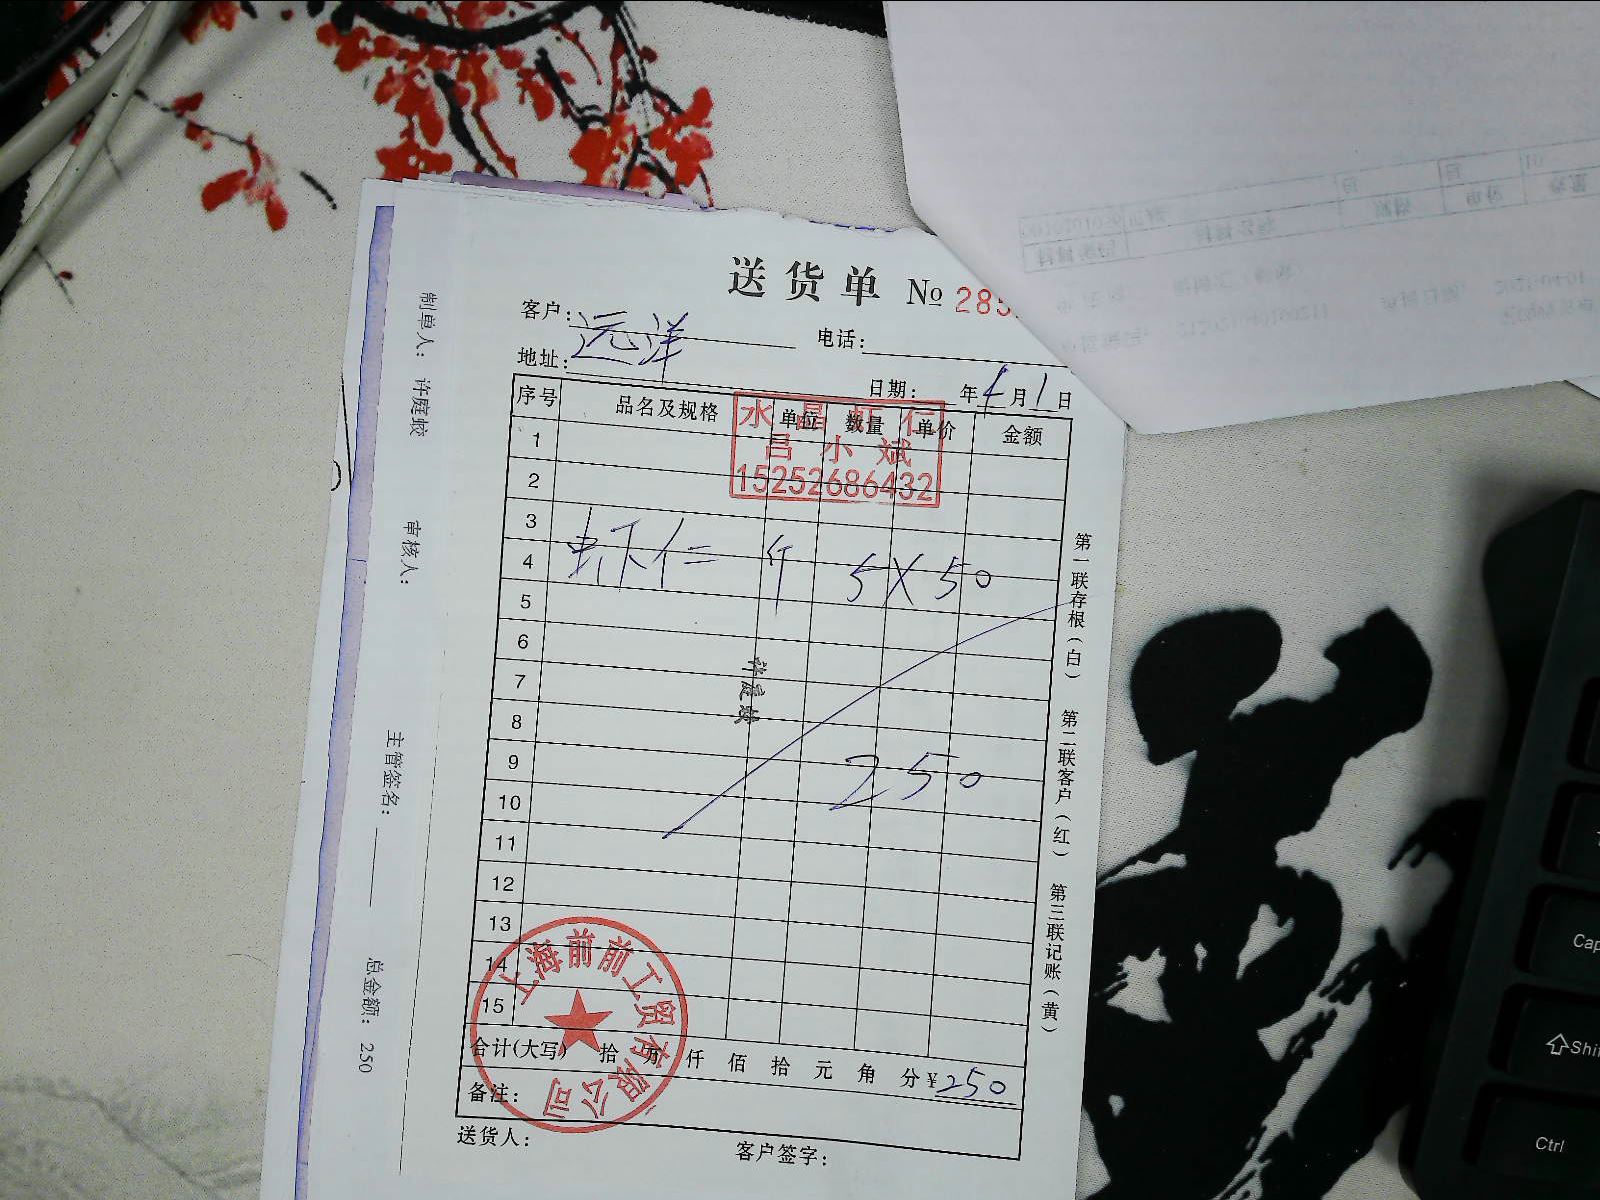 送货单 № 285
客户: 远洋
电话:
地址:
日期: 年 4月1日
序号 品名及规格 单位 数量 单价 金额
水晶虾仁
吕小斌
15252686432
1
2
3
4 虾仁 斤 5×50
5
6
7
8
9 250
10
11
12
13
14
15
合计(大写) 拾 万 仟 佰 拾 元 角 分 ¥250
备注:
送货人:
客户签字:
上海前前工贸有限公司
第一联存根(白) 第二联客户(红) 第三联记账(黄)
制单人: 许庭蛟 审核人: 主管签名: 总金额: 250
Shift
Ctrl